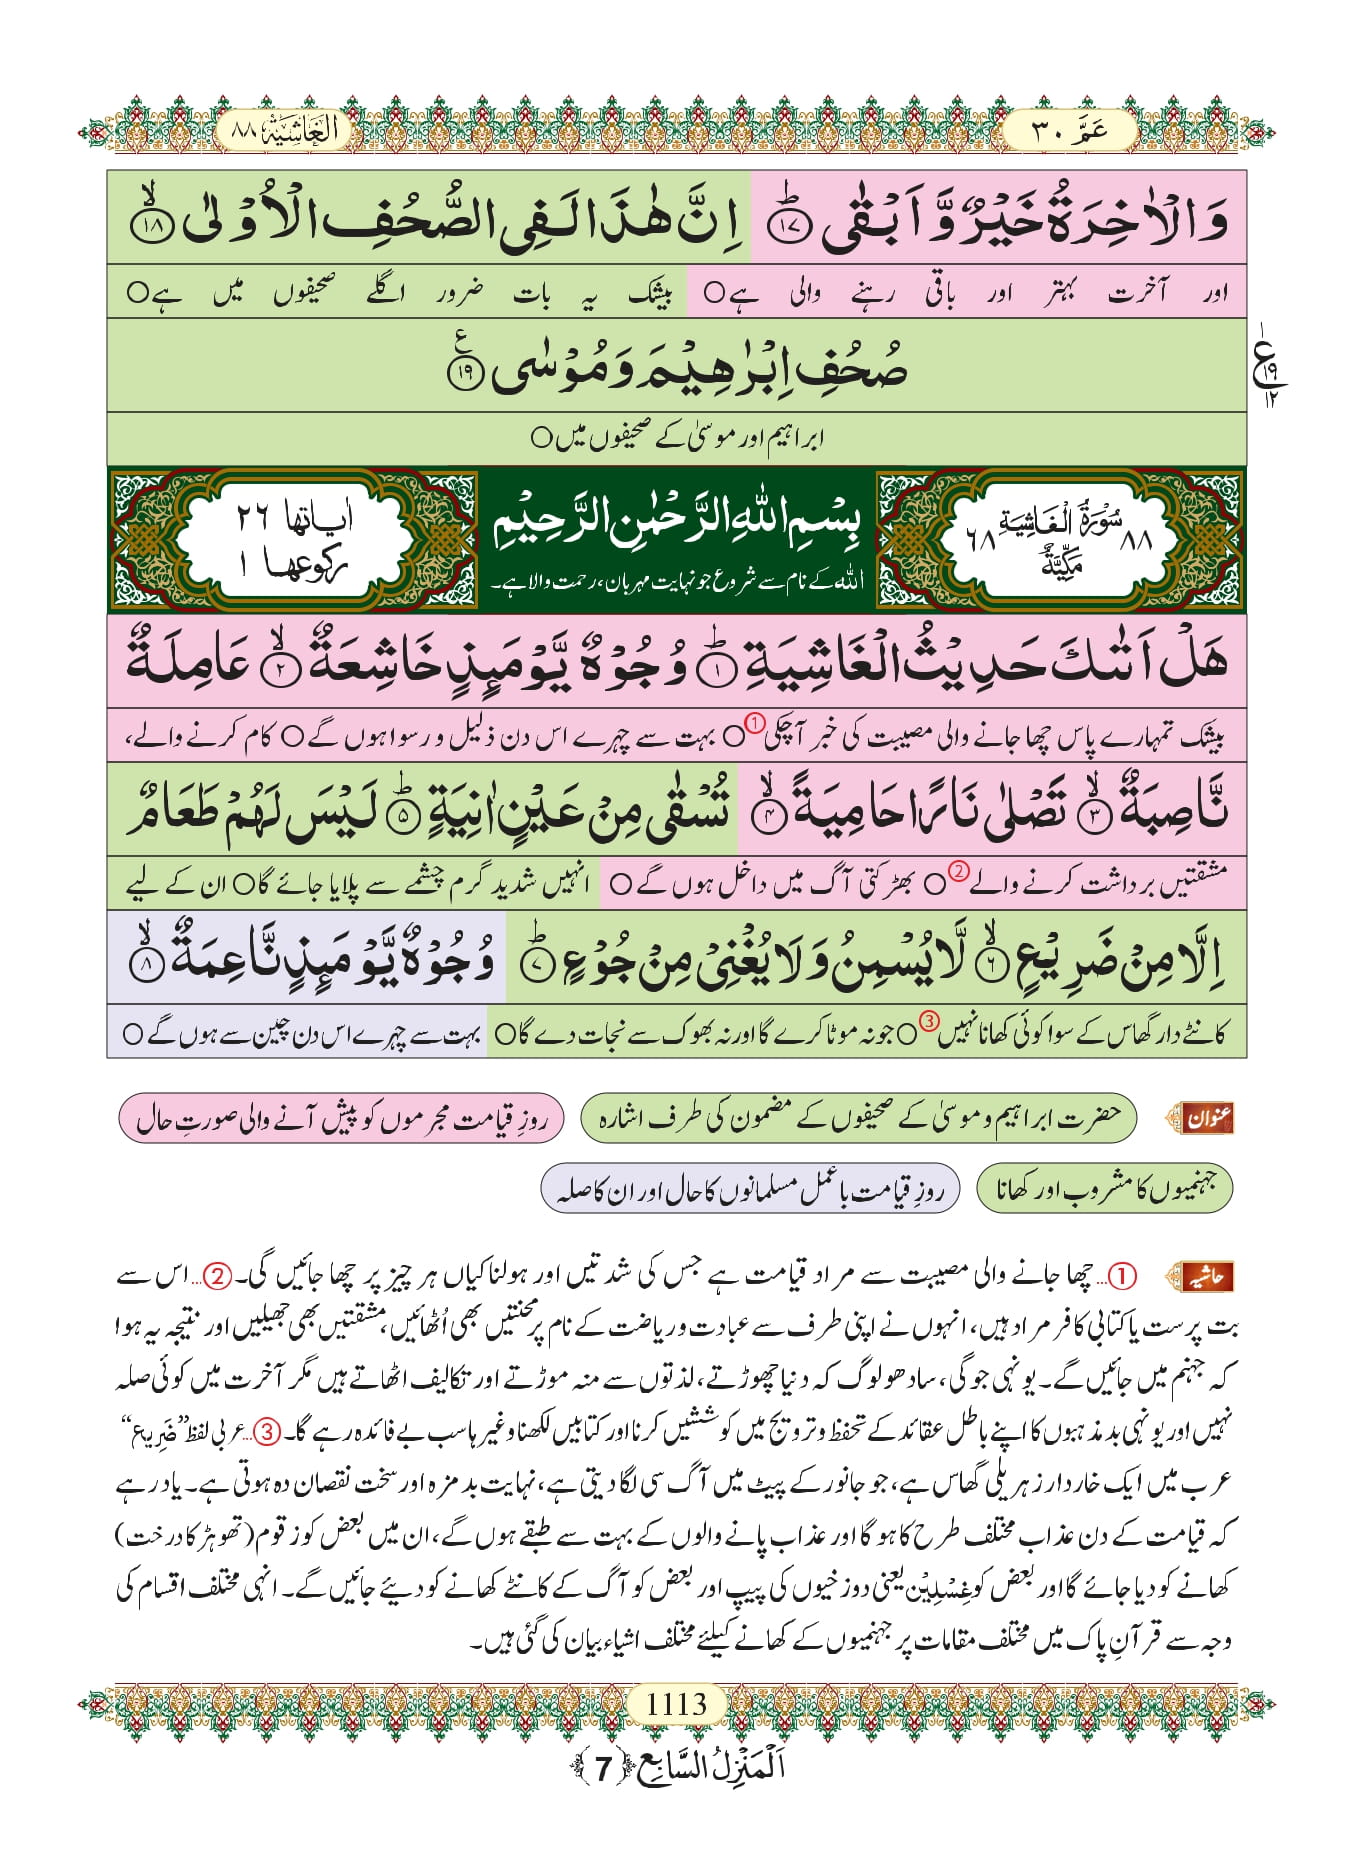 عَمَّ ٣٠
الْغَاشِيَة ٨٨
وَالْاٰخِرَةُ خَیْرٌ وَّ اَبْقٰی ﴿۱۷﴾ؕ اِنَّ هٰذَا لَفِی الصُّحُفِ الْاُوْلٰی ﴿۱۸﴾ۙ
اور آخرت بہتر اور باقی رہنے والی ہے○ بیشک یہ بات ضرور اگلے صحیفوں میں ہے○
صُحُفِ اِبْرٰهِیْمَ وَ مُوْسٰی ﴿۱۹﴾۠
ابراہیم اور موسیٰ کے صحیفوں میں○
۱
ع
۱۹
۱۲
۸۸ سُوْرَةُ الْغَاشِيَةِ ۶۸
مَكِّيَّةٌ
بِسْمِ اللّٰهِ الرَّحْمٰنِ الرَّحِیْمِ
اللّٰہ کے نام سے شروع جو نہایت مہربان، رحمت والا ہے۔
اٰیاتها ۲۶
رکوعها ۱
هَلْ اَتٰىكَ حَدِیْثُ الْغَاشِیَةِ ﴿۱﴾ؕ وُجُوْهٌ یَّوْمَىٕذٍ خَاشِعَةٌ ﴿۲﴾ۙ عَامِلَةٌ
بیشک تمہارے پاس چھا جانے والی مصیبت کی خبر آچکی①○ بہت سے چہرے اس دن ذلیل و رسوا ہوں گے○ کام کرنے والے،
نَّاصِبَةٌ ﴿۳﴾ۙ تَصْلٰی نَارًا حَامِیَةً ﴿۴﴾ۙ تُسْقٰی مِنْ عَیْنٍ اٰنِیَةٍ ﴿۵﴾ؕ لَیْسَ لَهُمْ طَعَامٌ
مشقتیں برداشت کرنے والے②○ بھڑکتی آگ میں داخل ہوں گے○ انہیں شدید گرم چشمے سے پلایا جائے گا○ ان کے لیے
اِلَّا مِنْ ضَرِیْعٍ ﴿۶﴾ۙ لَّا یُسْمِنُ وَ لَا یُغْنِیْ مِنْ جُوْعٍ ﴿۷﴾ؕ وُجُوْهٌ یَّوْمَىٕذٍ نَّاعِمَةٌ ﴿۸﴾ۙ
کانٹے دار گھاس کے سوا کوئی کھانا نہیں③○ جو نہ موٹا کرے گا اور نہ بھوک سے نجات دے گا○ بہت سے چہرے اس دن چین سے ہوں گے○
عنوان حضرت ابراہیم و موسیٰ کے صحیفوں کے مضمون کی طرف اشارہ روزِ قیامت مجرموں کو پیش آنے والی صورتِ حال
جہنمیوں کا مشروب اور کھانا روزِ قیامت با عمل مسلمانوں کا حال اور ان کا صلہ
حاشیہ ①...چھا جانے والی مصیبت سے مراد قیامت ہے جس کی شدتیں اور ہولناکیاں ہر چیز پر چھا جائیں گی۔②...اس سے
بت پرست یا کتابی کافر مراد ہیں، انہوں نے اپنی طرف سے عبادت و ریاضت کے نام پر محنتیں بھی اُٹھائیں، مشقتیں بھی جھیلیں اور نتیجہ یہ ہوا
کہ جہنم میں جائیں گے۔ یونہی جوگی، سادھو لوگ کہ دنیا چھوڑتے، لذتوں سے منہ موڑتے اور تکالیف اٹھاتے ہیں مگر آخرت میں کوئی صلہ
نہیں اور یونہی بدمذہبوں کا اپنے باطل عقائد کے تحفظ و ترویج میں کوششیں کرنا اور کتابیں لکھنا وغیرہا سب بے فائدہ رہے گا۔③...عربی لفظ ”ضَرِیع“
عرب میں ایک خاردار زہریلی گھاس ہے، جو جانور کے پیٹ میں آگ سی لگا دیتی ہے، نہایت بدمزہ اور سخت نقصان دہ ہوتی ہے۔ یاد رہے
کہ قیامت کے دن عذاب مختلف طرح کا ہو گا اور عذاب پانے والوں کے بہت سے طبقے ہوں گے، ان میں بعض کو زقوم (تھوہڑ کا درخت)
کھانے کو دیا جائے گا اور بعض کو غِسْلِیْن یعنی دوزخیوں کی پیپ اور بعض کو آگ کے کانٹے کھانے کو دیئے جائیں گے۔ انہی مختلف اقسام کی
وجہ سے قرآنِ پاک میں مختلف مقامات پر جہنمیوں کے کھانے کیلئے مختلف اشیاء بیان کی گئی ہیں۔
1113
اَلْمَنْزِلُ السَّابِع ﴿7﴾